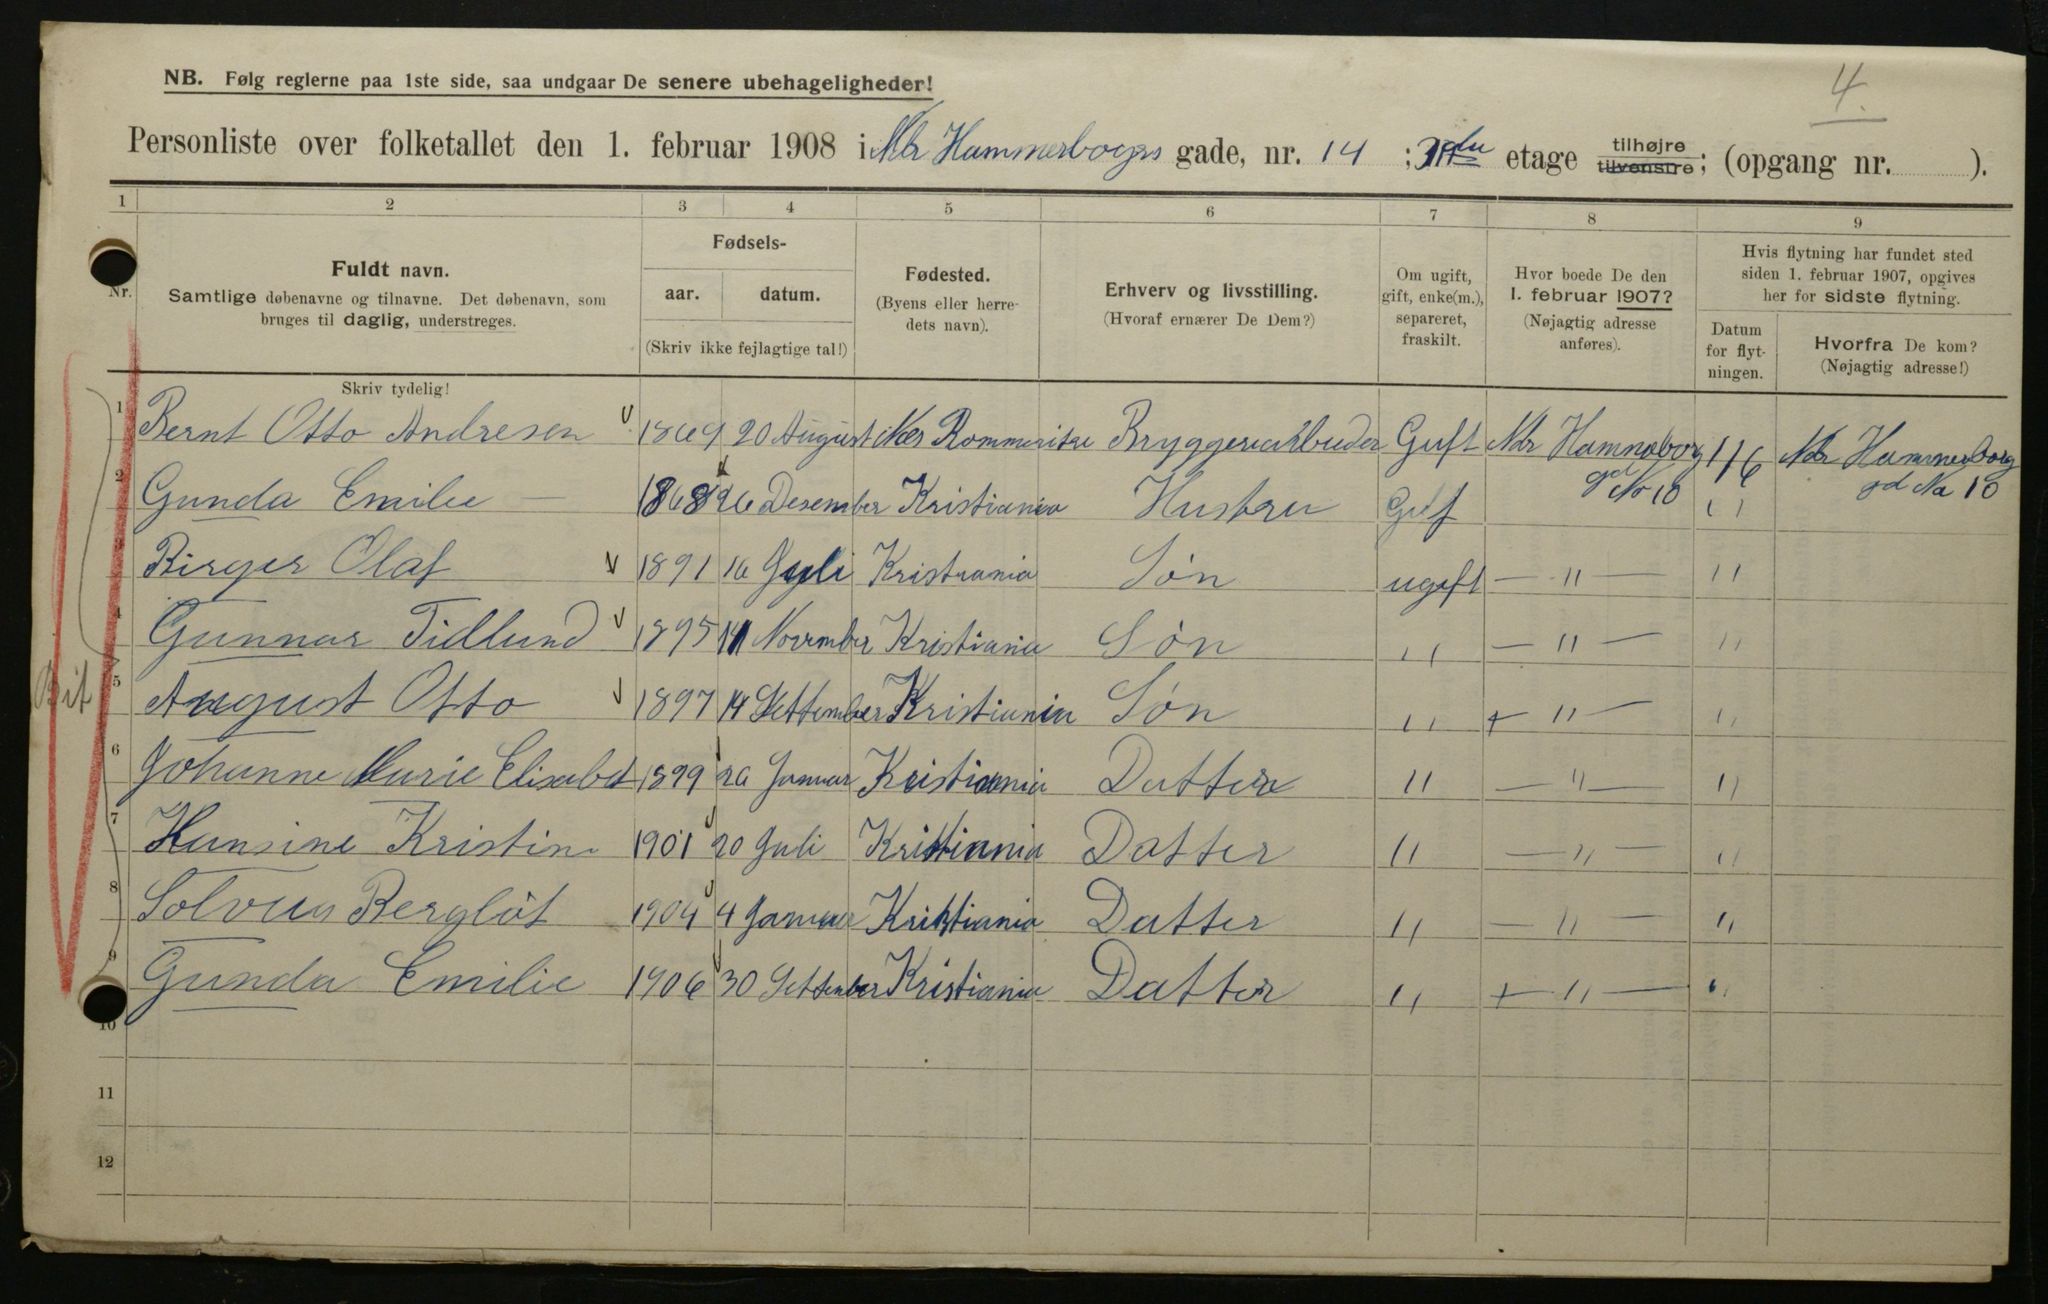 4.
NB. Følg reglerne paa 1ste side, saa undgaar De senere ubehageligheder!
Personliste over folketallet den 1. februar 1908 i Hammerborgs gade, nr. 14 ; etage tilhøjre tilvenstre; (opgang nr. ).
1 2 3 4 5 6 7 8 9
Nr.
Fuldt navn.
Samtlige døbenavne og tilnavne. Det døbenavn, som
bruges til daglig, understreges.
Skriv tydelig!
Fødsels-
aar. datum.
(Skriv ikke fejlagtige tal!)
Fødested.
(Byens eller herre-
dets navn).
Erhverv og livsstilling.
(Hvoraf ernærer De Dem?)
Om ugift,
gift, enke(m.),
separeret,
fraskilt.
Hvor boede De den
1. februar 1907?
(Nøjagtig adresse
anføres).
Hvis flytning har fundet sted
siden 1. februar 1907, opgives
her for sidste flytning.
Datum
for flyt-
ningen.
Hvorfra De kom?
(Nøjagtig adresse!)
1 Bernt Otto Andresen 1869 20 August Nes Rommerike Gift Ndr 1/6 Ndr Hammerborg
gd No 10 gd No 10
2 Gunda Emilie — 1868 26 Desember Kristiania Hustru " "
3 Birger Olaf 1891 16 Kristiania Søn ugift — " — " "
4 Gunnar Tidlund 1895 November Kristiania Søn " — " — " "
5 August Otto 1897 14 Settember Kristiania Søn " — " — " "
6 Johanne Marie Elisabet 1899 Januar Kristiania Datter " — " — " "
7 Hansine Kristine 1901 20 Juli Kristiania Datter " — " — " "
8 Solveig Bergliöt 1904 4 Januar Kristiania Datter " — " — " "
9 Gunda Emilie 1906 30 Settember Kristiania Datter " — " — " "
10
11
12